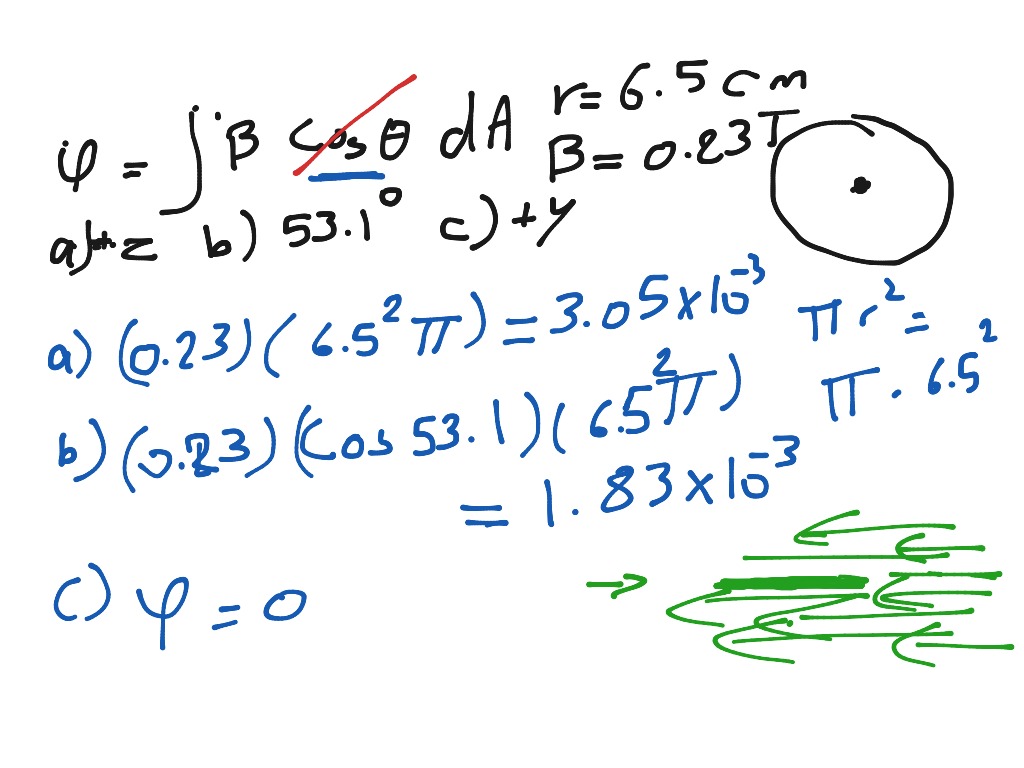 φ = ∫ B cos θ dA r = 6.5 cm
B = 0.23 T
a) +z b) 53.1° c) +y
a) (0.23) ( 6.5² π ) = 3.05 × 10⁻³ π r² =
π . 6.5²
b) (0.23) (cos 53.1) ( 6.5² π )
= 1.83 × 10⁻³
c) φ = 0